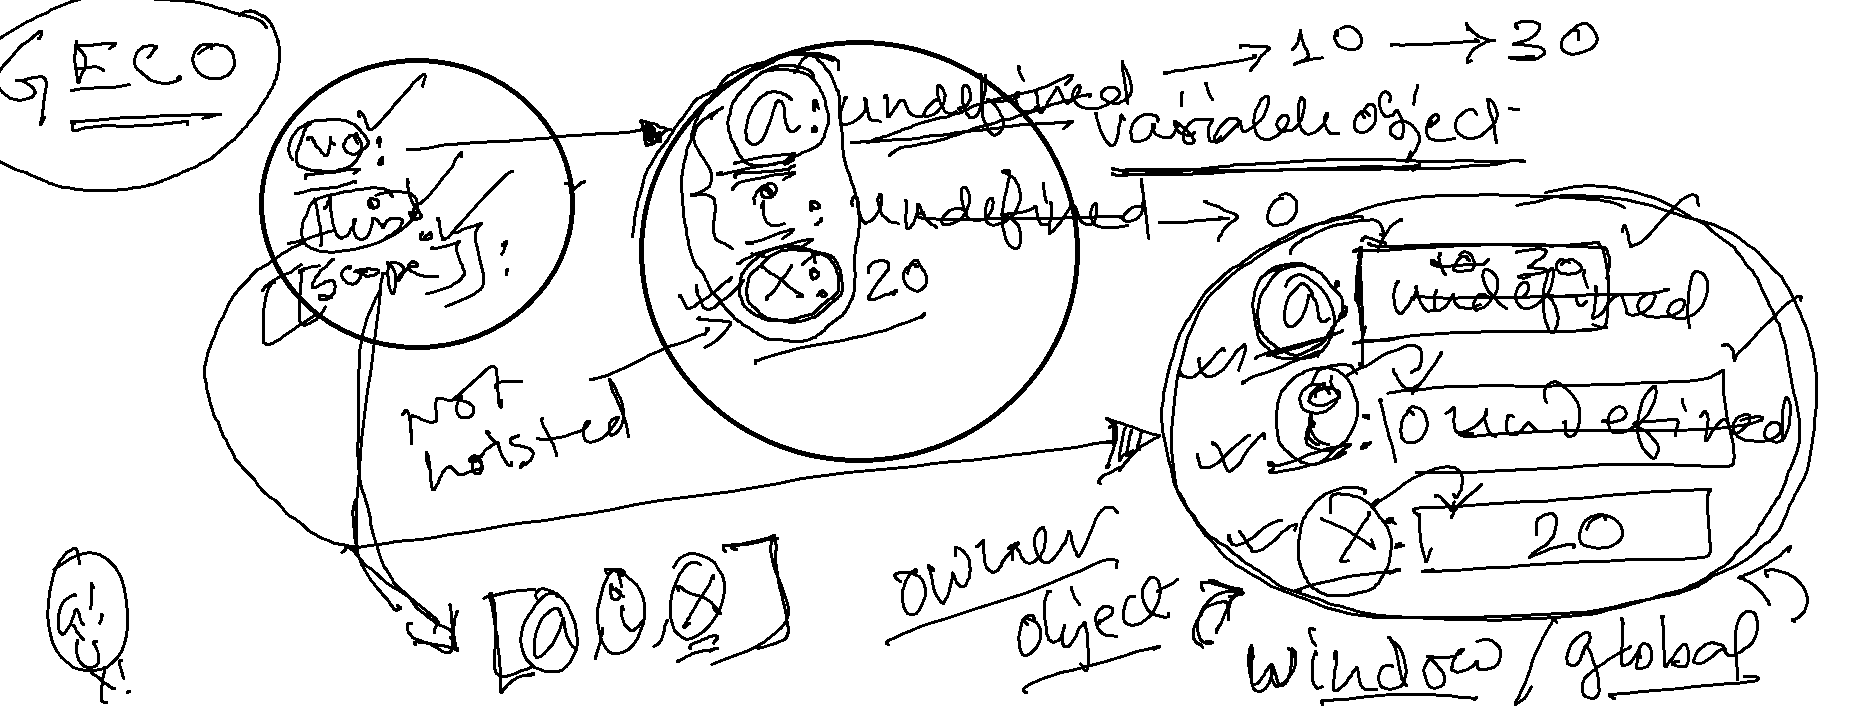 GECO
vo:
this:
[[scope]]:
a: undefined → 10 → 30
variable object
i: undefined → 0
x: 20
Not
hoisted
a: undefined 10 30
i: 0 undefined
x: 20
[a i x]
owner
object
window / global
a:
i:
x: